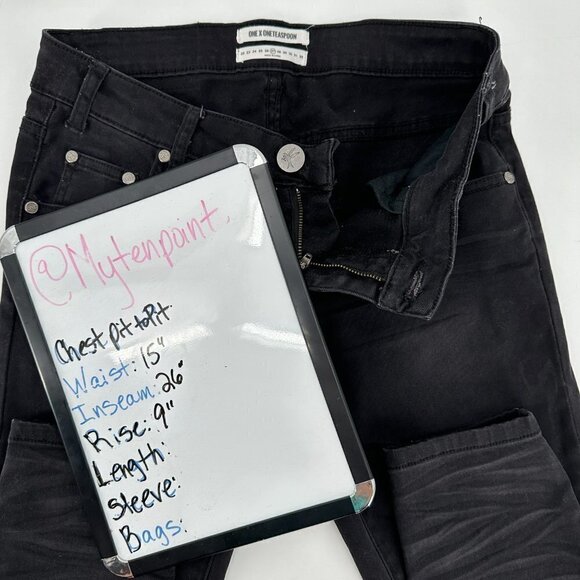 ONE X ONETEASPOON
@Mytenpoint.
Chest pit to Pit:
Waist: 15"
Inseam: 26"
Rise: 9"
Length:
Sleeve:
Bags: